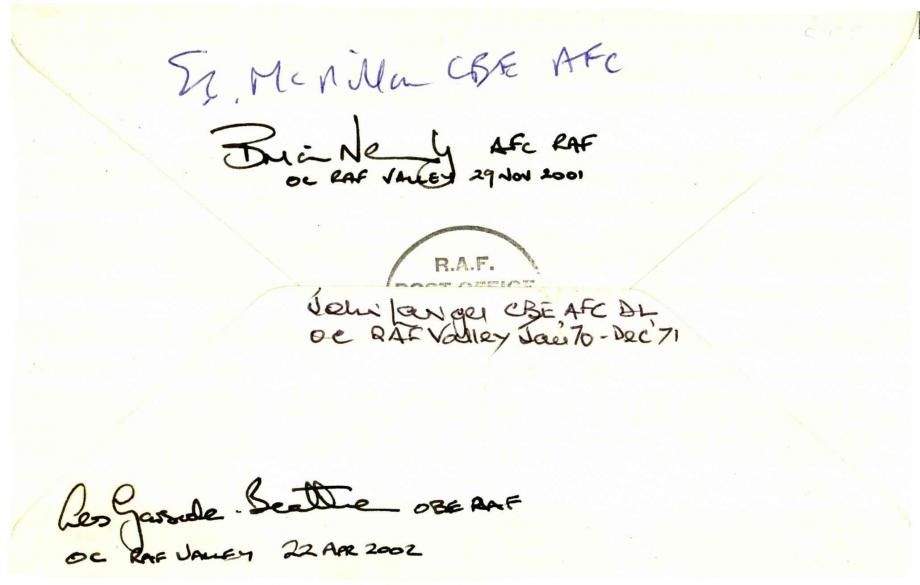 McMillan CBE AFC
Brian N AFC RAF
OC RAF VALLEY 29 NOV 2001
R.A.F.
POST OFFICE
John Langer CBE AFC DL
OC RAF Valley Jan '70 - Dec '71
Les Garside-Beattie OBE RAF
OC RAF VALLEY 22 APR 2002